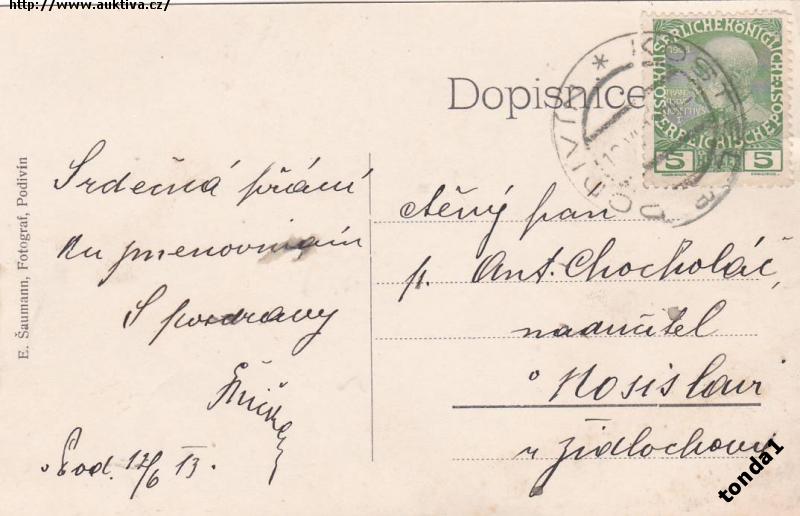 http://www.auktiva.cz/
Dopisnice
KAISERLICHE KÖNIGLICHE
ÖSTERREICHISCHE POST
5 5
E. Šaumann, Fotograf, Podivín
Srdečná přání
ku jmenovinám
S pozdravy
12/6 13.
Ctěný pan
p. Ant. Chocholáč,
nadučitel
v Nosislavi
u Židlochovic
tonda1